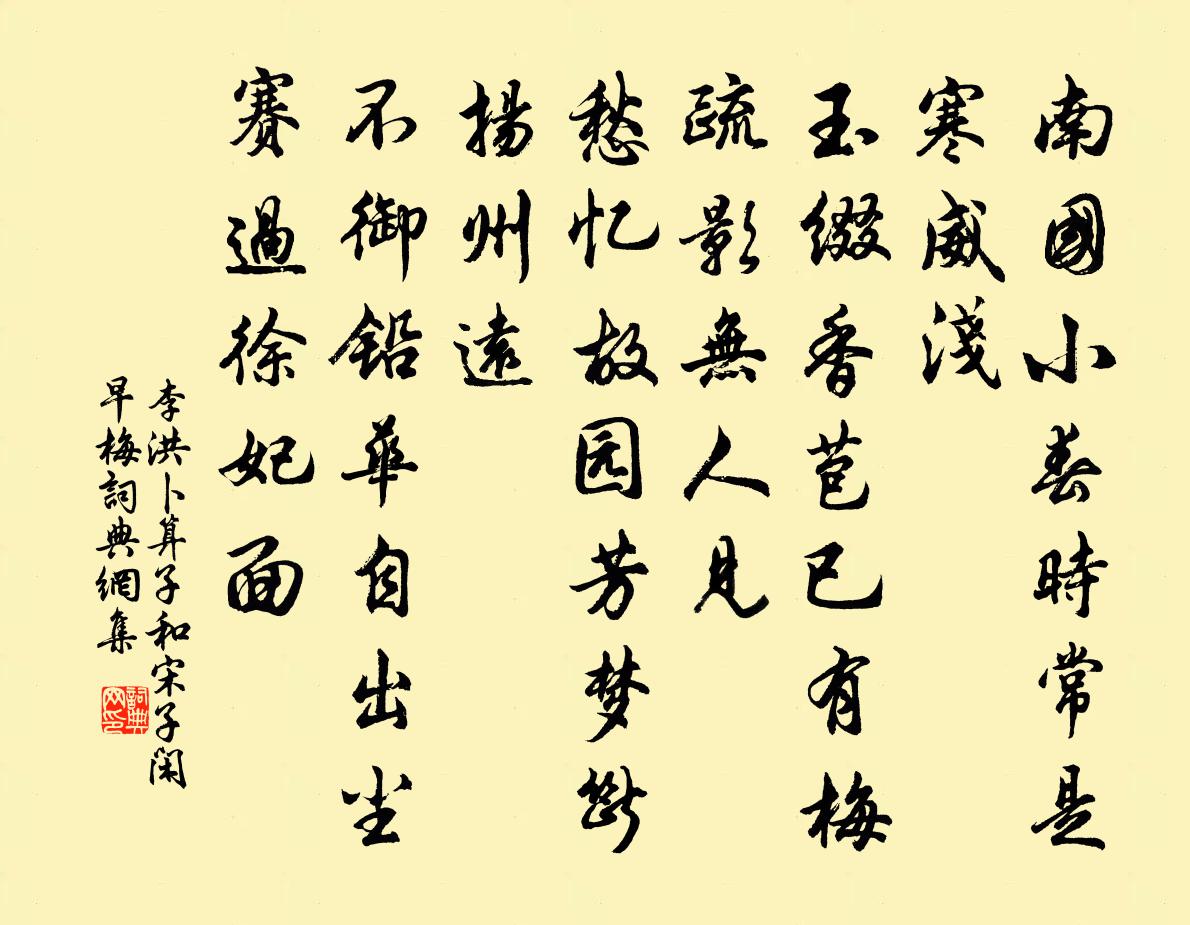 南國小春時常是
寒威淺
玉缀香苞已有梅
疏影無人見
愁忆故园芳梦斷
揚州遠
不御铅華自出尘
賽過徐妃面
李洪卜算子和宋子閑
早梅詞典網集
詞典
网印